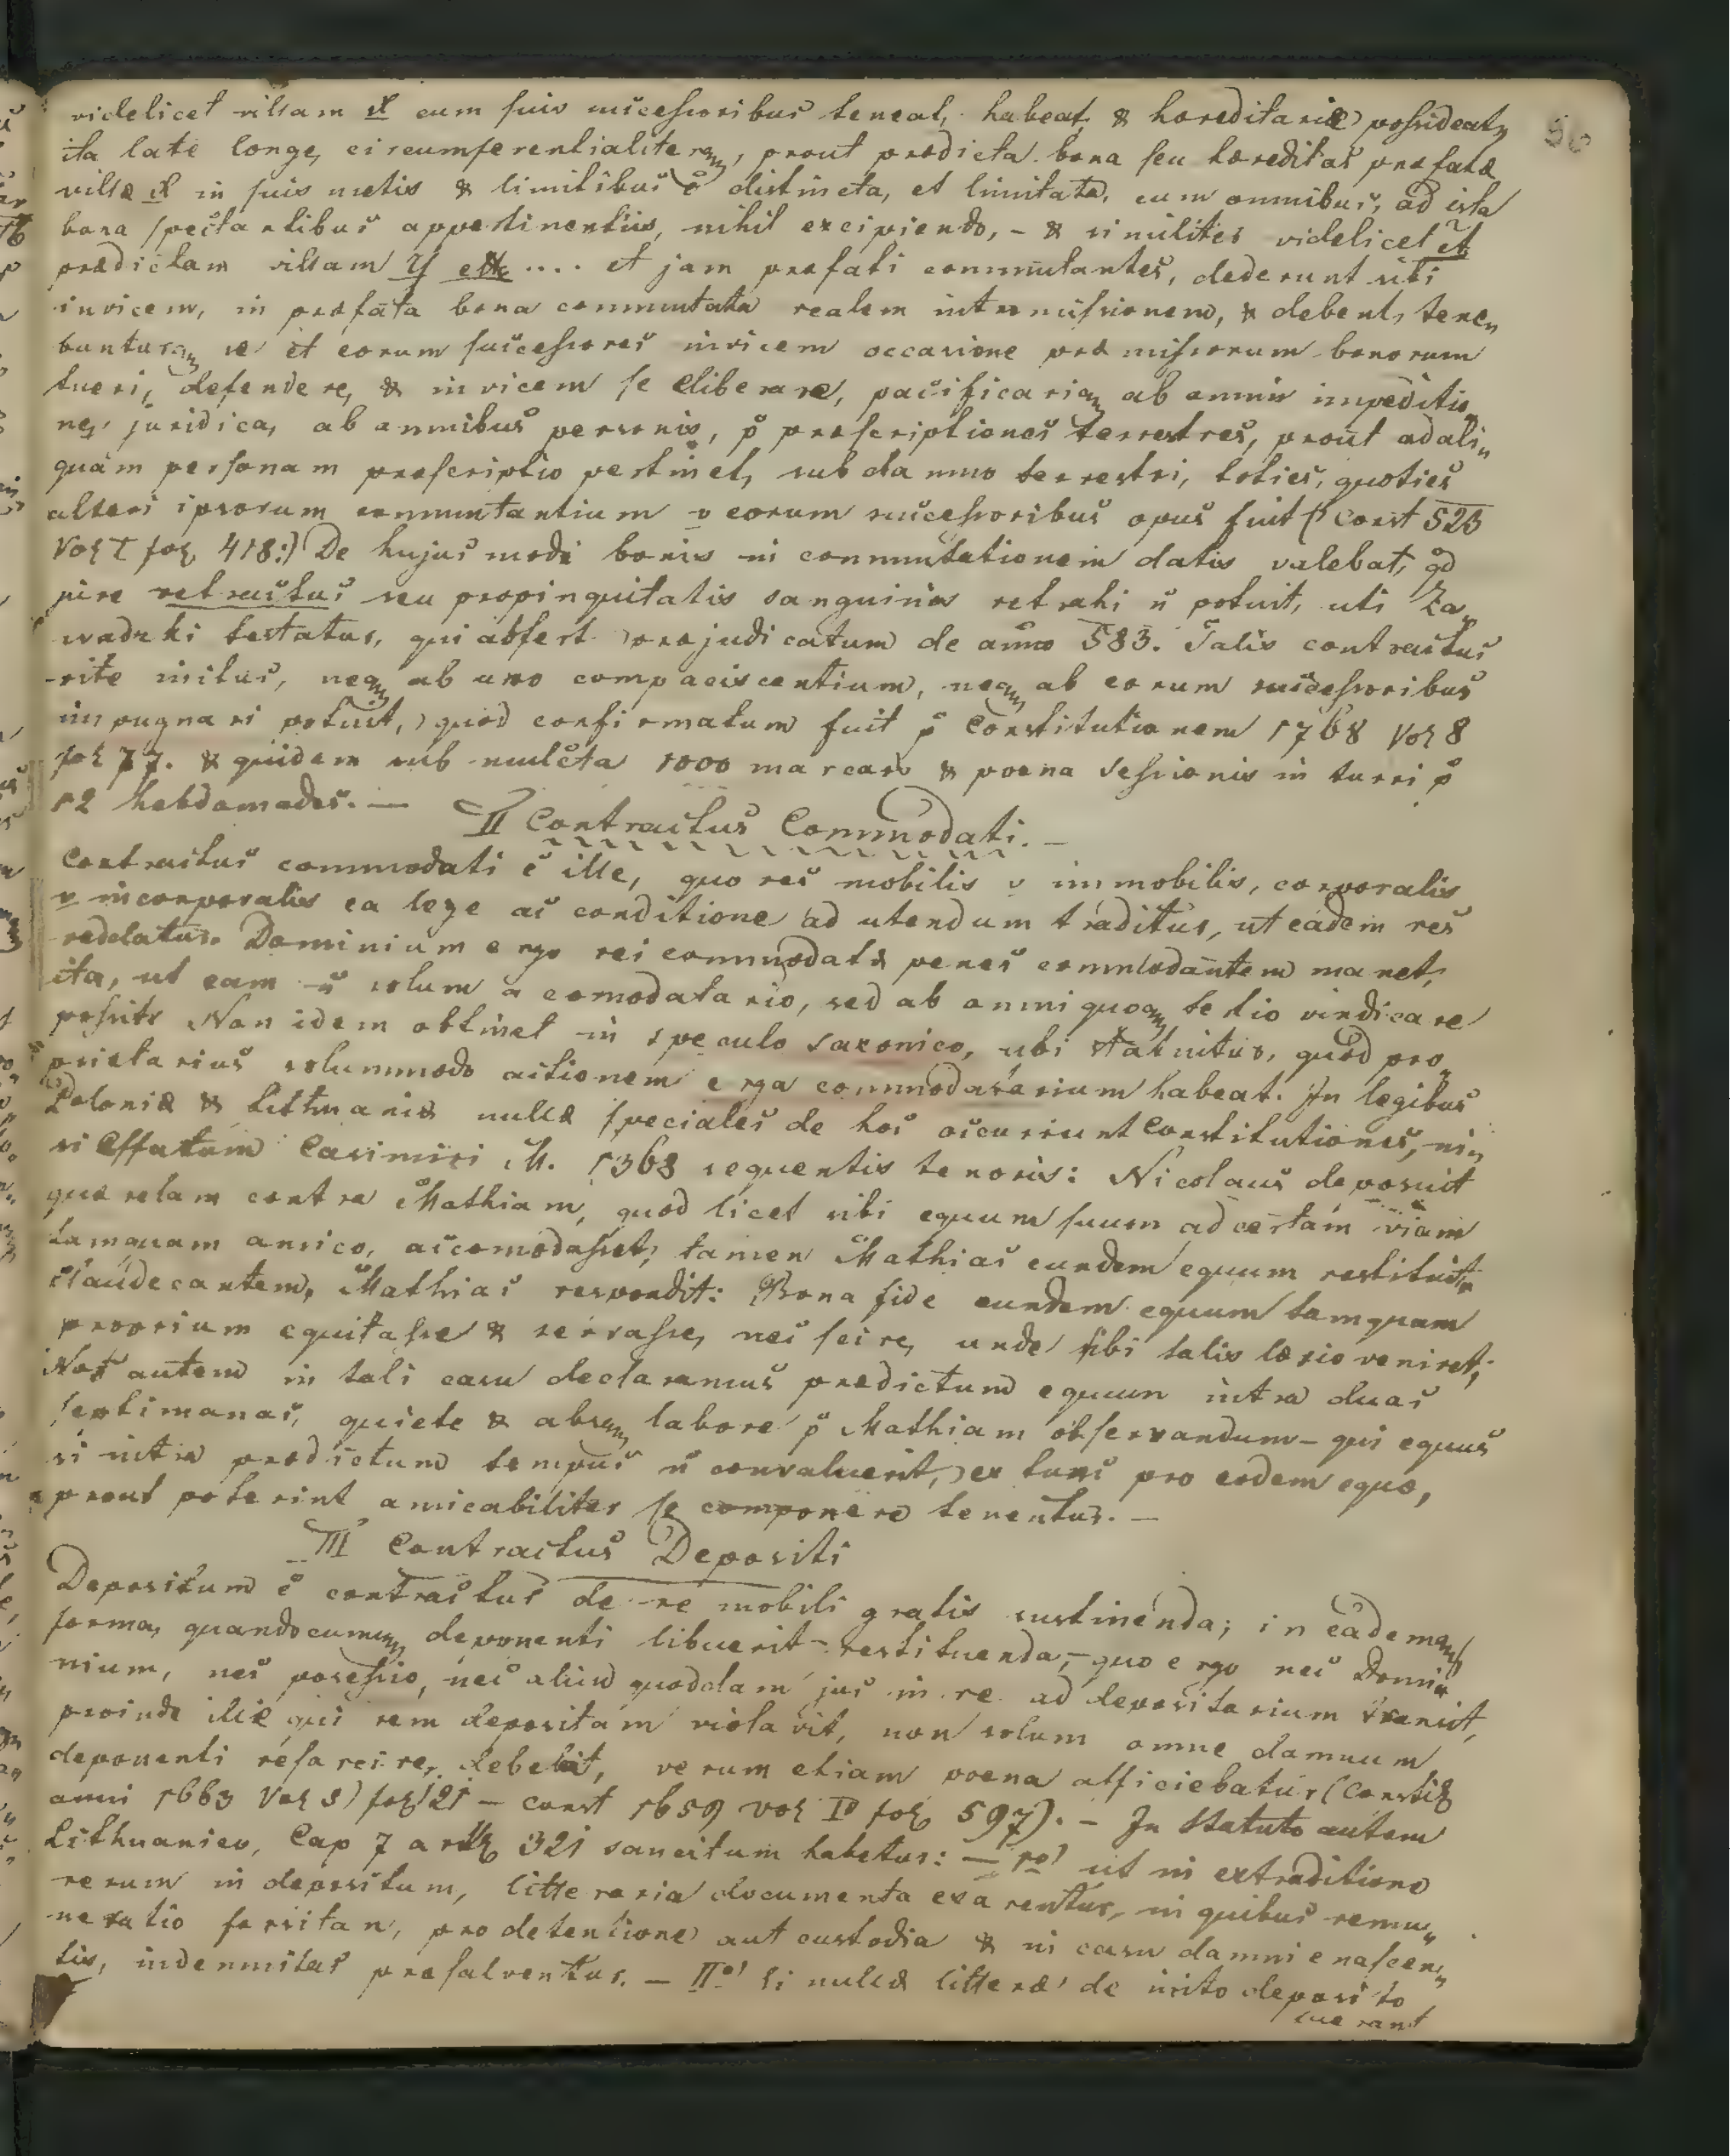 videlicet villam X cum suis successoribus teneat, habeat, & hæreditariæ possideat,
ita late longe, circumferentialiterq, prout prædicta bona seu hæreditas præfatæ
villæ X in suis metis & limitibus ē distincta, et limitata, cum omnibus, ad ista
bona spectantibus appertinentiis, nihil excipiendo, - & similiter videlicet et
prædictam villam Y etc .... et jam præfati commutantes, dederunt sibi
invicem, in præfata bona commutata realem intromissionem, & debent, tene„
bunturq se et eorum successores invicem occasione præmissorum bonorum
tueri, defendere, & invicem se eliberare, pacificariq ab omni impeditio„
ne, juridica, ab omnibus personis, p̄ præscriptiones terrestres, prout ad ali„
quam personam præscriptio pertinet, sub damno terrestri, toties, quoties
alteri ipsorum commutantium v eorum successoribus opus fuit (: Const 523
Vol I fol 418:) De hujusmodi bonis in commutationem datis valebat, qd
jure retractus seu propinquitatis sanguinis retrahi ñ potuit, uti Za„
wadzki testatur, qui affert præjudicatum de anno 583. Talis contractus
rite initus, neq ab uno compaciscentium, neq ab eorum successoribus
impugnari potuit, quod confirmatum fuit p̄ Constitutionem 1768 Vol 8
fol 77. & quidem sub mulcta 1000 marcar & poena sessionis in turri p̄
12 hebdomades. —
II Contractus Commodati. —
Contractus commodati ē ille, quo res mobilis v immobilis, corporalis
v incorporalis ea lege ac conditione ad utendum traditur, ut eadem res
reddatur. Dominium ergo rei commodatæ penes commodantem manet,
ita, ut eam ñ solum a comodatario, sed ab omni quoq tertio vindicare
possit. Non idem obtinet in speculo saxonico, ubi statuitur, quod pro„
prietarius solummodo actionem erga commodatarium habeat. In legibus
Poloniæ & Lithuaniæ nullæ speciales de hoc occurrunt Constitutiones, ni„
si Effatum Casimiri M. 1368 sequentis tenoris: Nicolaus deposuit
querelam contra Mathiam, quod licet sibi equum suum ad certam viam
tamquam amico, accomodasset, tamen Mathias eundem equum restituit
claudecantem, Mathias respondit: Bona fide eundem equum tamquam
proprium equitasse & servasse, nec scire, unde sibi talis læsio veniret;
Nos autem in tali casu declaramus prædictum equum intra duas
septimanas, quiete & absq labore p̄ Mathiam observandum - qui equus
si intra prædictum tempus ñ convaluerit, ex tunc pro eodem equo,
prout poterint amicabiliter se componere tenentur. —
III Contractus Depositi
Depositum ē contractus de re mobili gratis custinenda; in eademq
forma, quandocumq deponenti libuerit - restituenda, - quo ergo nec Domi„
nium, nec posessio, nec aliud quoddam jus in re ad depositarium transit,
proinde ille qui rem depositam violavit, non solum omne damnum
deponenti resarcire, debebat, verum etiam poena afficiebatur (Constit
anni 1663 Vol 3) fol 121 - const 1659 vol IV fol 597). - In Statuto autem
Lithuanico, Cap 7 artik 321 sancitum habetur: - Imo ut in extraditione
rerum in depositum, litteraria documenta exarentur, in quibus remu„
neratio forsitan, pro detentione aut custodia & in casu damni enascen„
tis, indemnitas præsalventur. - IIo si nullæ litteræ de inito deposito
fuerant